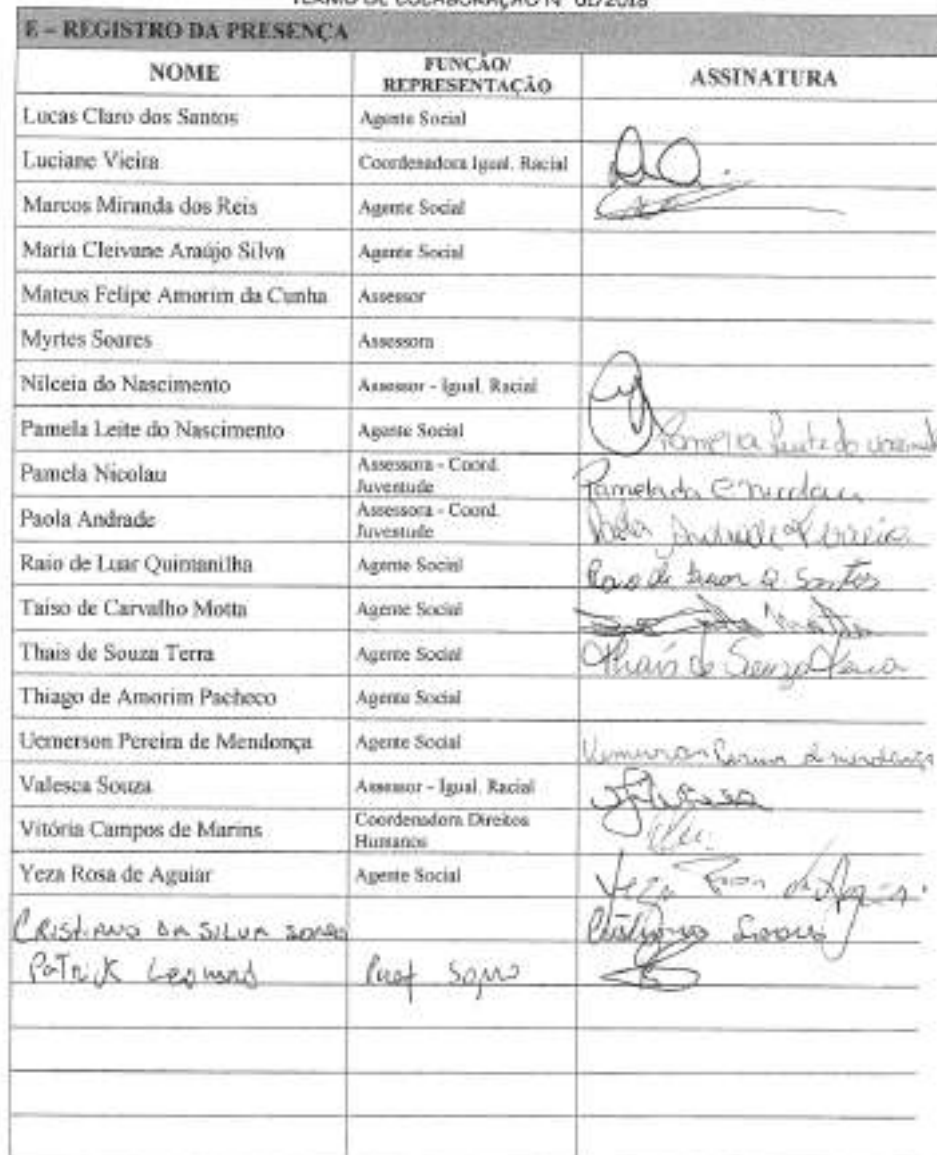 TERMO DE COLABORAÇÃO Nº 01/2018
E – REGISTRO DA PRESENÇA
NOME FUNÇÃO/ REPRESENTAÇÃO ASSINATURA
Lucas Claro dos Santos Agente Social
Luciane Vieira Coordenadora Igual. Racial
Marcos Miranda dos Reis Agente Social
Maria Cleivane Araújo Silva Agente Social
Mateus Felipe Amorim da Cunha Assessor
Myrtes Soares Assessora
Nilceia do Nascimento Assessor - Igual. Racial
Pamela Leite do Nascimento Agente Social Pamella Leite do
Pamela Nicolau Assessora - Coord. Juventude
Paola Andrade Assessora - Coord. Juventude Andrade Ferreira
Raio de Luar Quintanilha Agente Social Raio de Luar Q. Santos
Taiso de Carvalho Motta Agente Social
Thais de Souza Terra Agente Social Thais de Souza Terra
Thiago de Amorim Pacheco Agente Social
Uemerson Pereira de Mendonça Agente Social Uemerson Pereira de Mendonça
Valesca Souza Assessor - Igual. Racial
Vitória Campos de Marins Coordenadora Direitos Humanos
Yeza Rosa de Aguiar Agente Social Yeza Rosa de Aguiar
CRISTIANO DA SILVA SOARES Cristiano Soares
PATRICK Leonard Prof